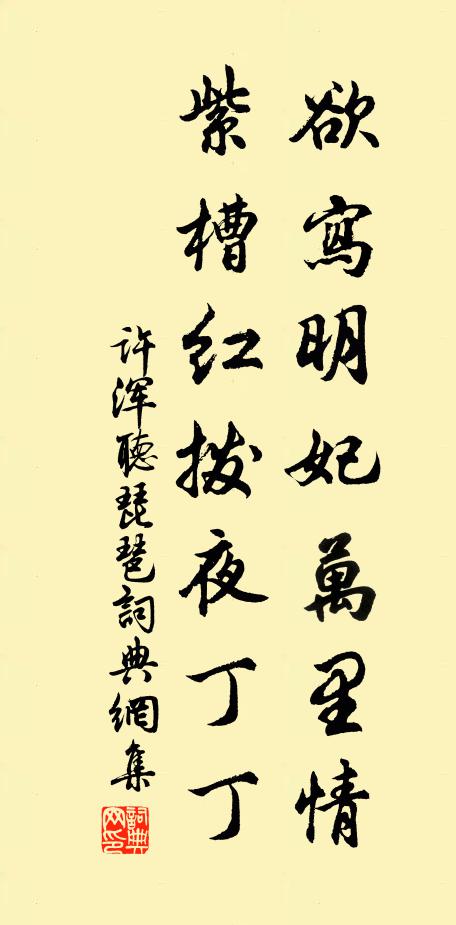 欲寫明妃萬里情
紫槽红撥夜丁丁
许浑聽琵琶詞典網集
詞典网印